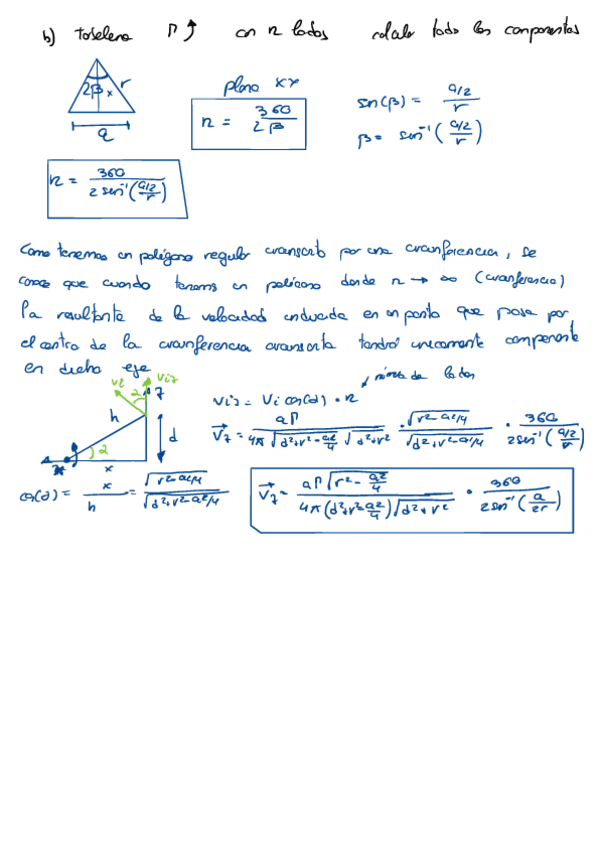 b) toroeleno Γ con n lados calcular todas las componentes
2β x r
a
plano xy
n = 360 / 2β
sen(β) = (a/2) / r
β = sen⁻¹((a/2)/r)
n = 360 / (2 sen⁻¹((a/2)/r))
Como tenemos un polígono regular circunscrito por una circunferencia, se
conoce que cuando tenemos un polígono donde n → ∞ (circunferencia)
la resultante de la velocidad inducida en un punto que pasa por
el centro de la circunferencia circunscrita tendrá unicamente componente
en dicho eje
número de lados
vi viz z
h d x
viz = vi cos(α) · n
V⃗z = aΓ / (4π √(d²+r²-a²/4) √(d²+r²)) · √(r²-a²/4) / √(d²+r²-a²/4) · 360 / (2sen⁻¹((a/2)/r))
cos(α) = x/h = √(r²-a²/4) / √(d²+r²-a²/4)
V⃗z = aΓ√(r²-a²/4) / (4π(d²+r²-a²/4)√(d²+r²)) · 360 / (2sen⁻¹(a/2r))